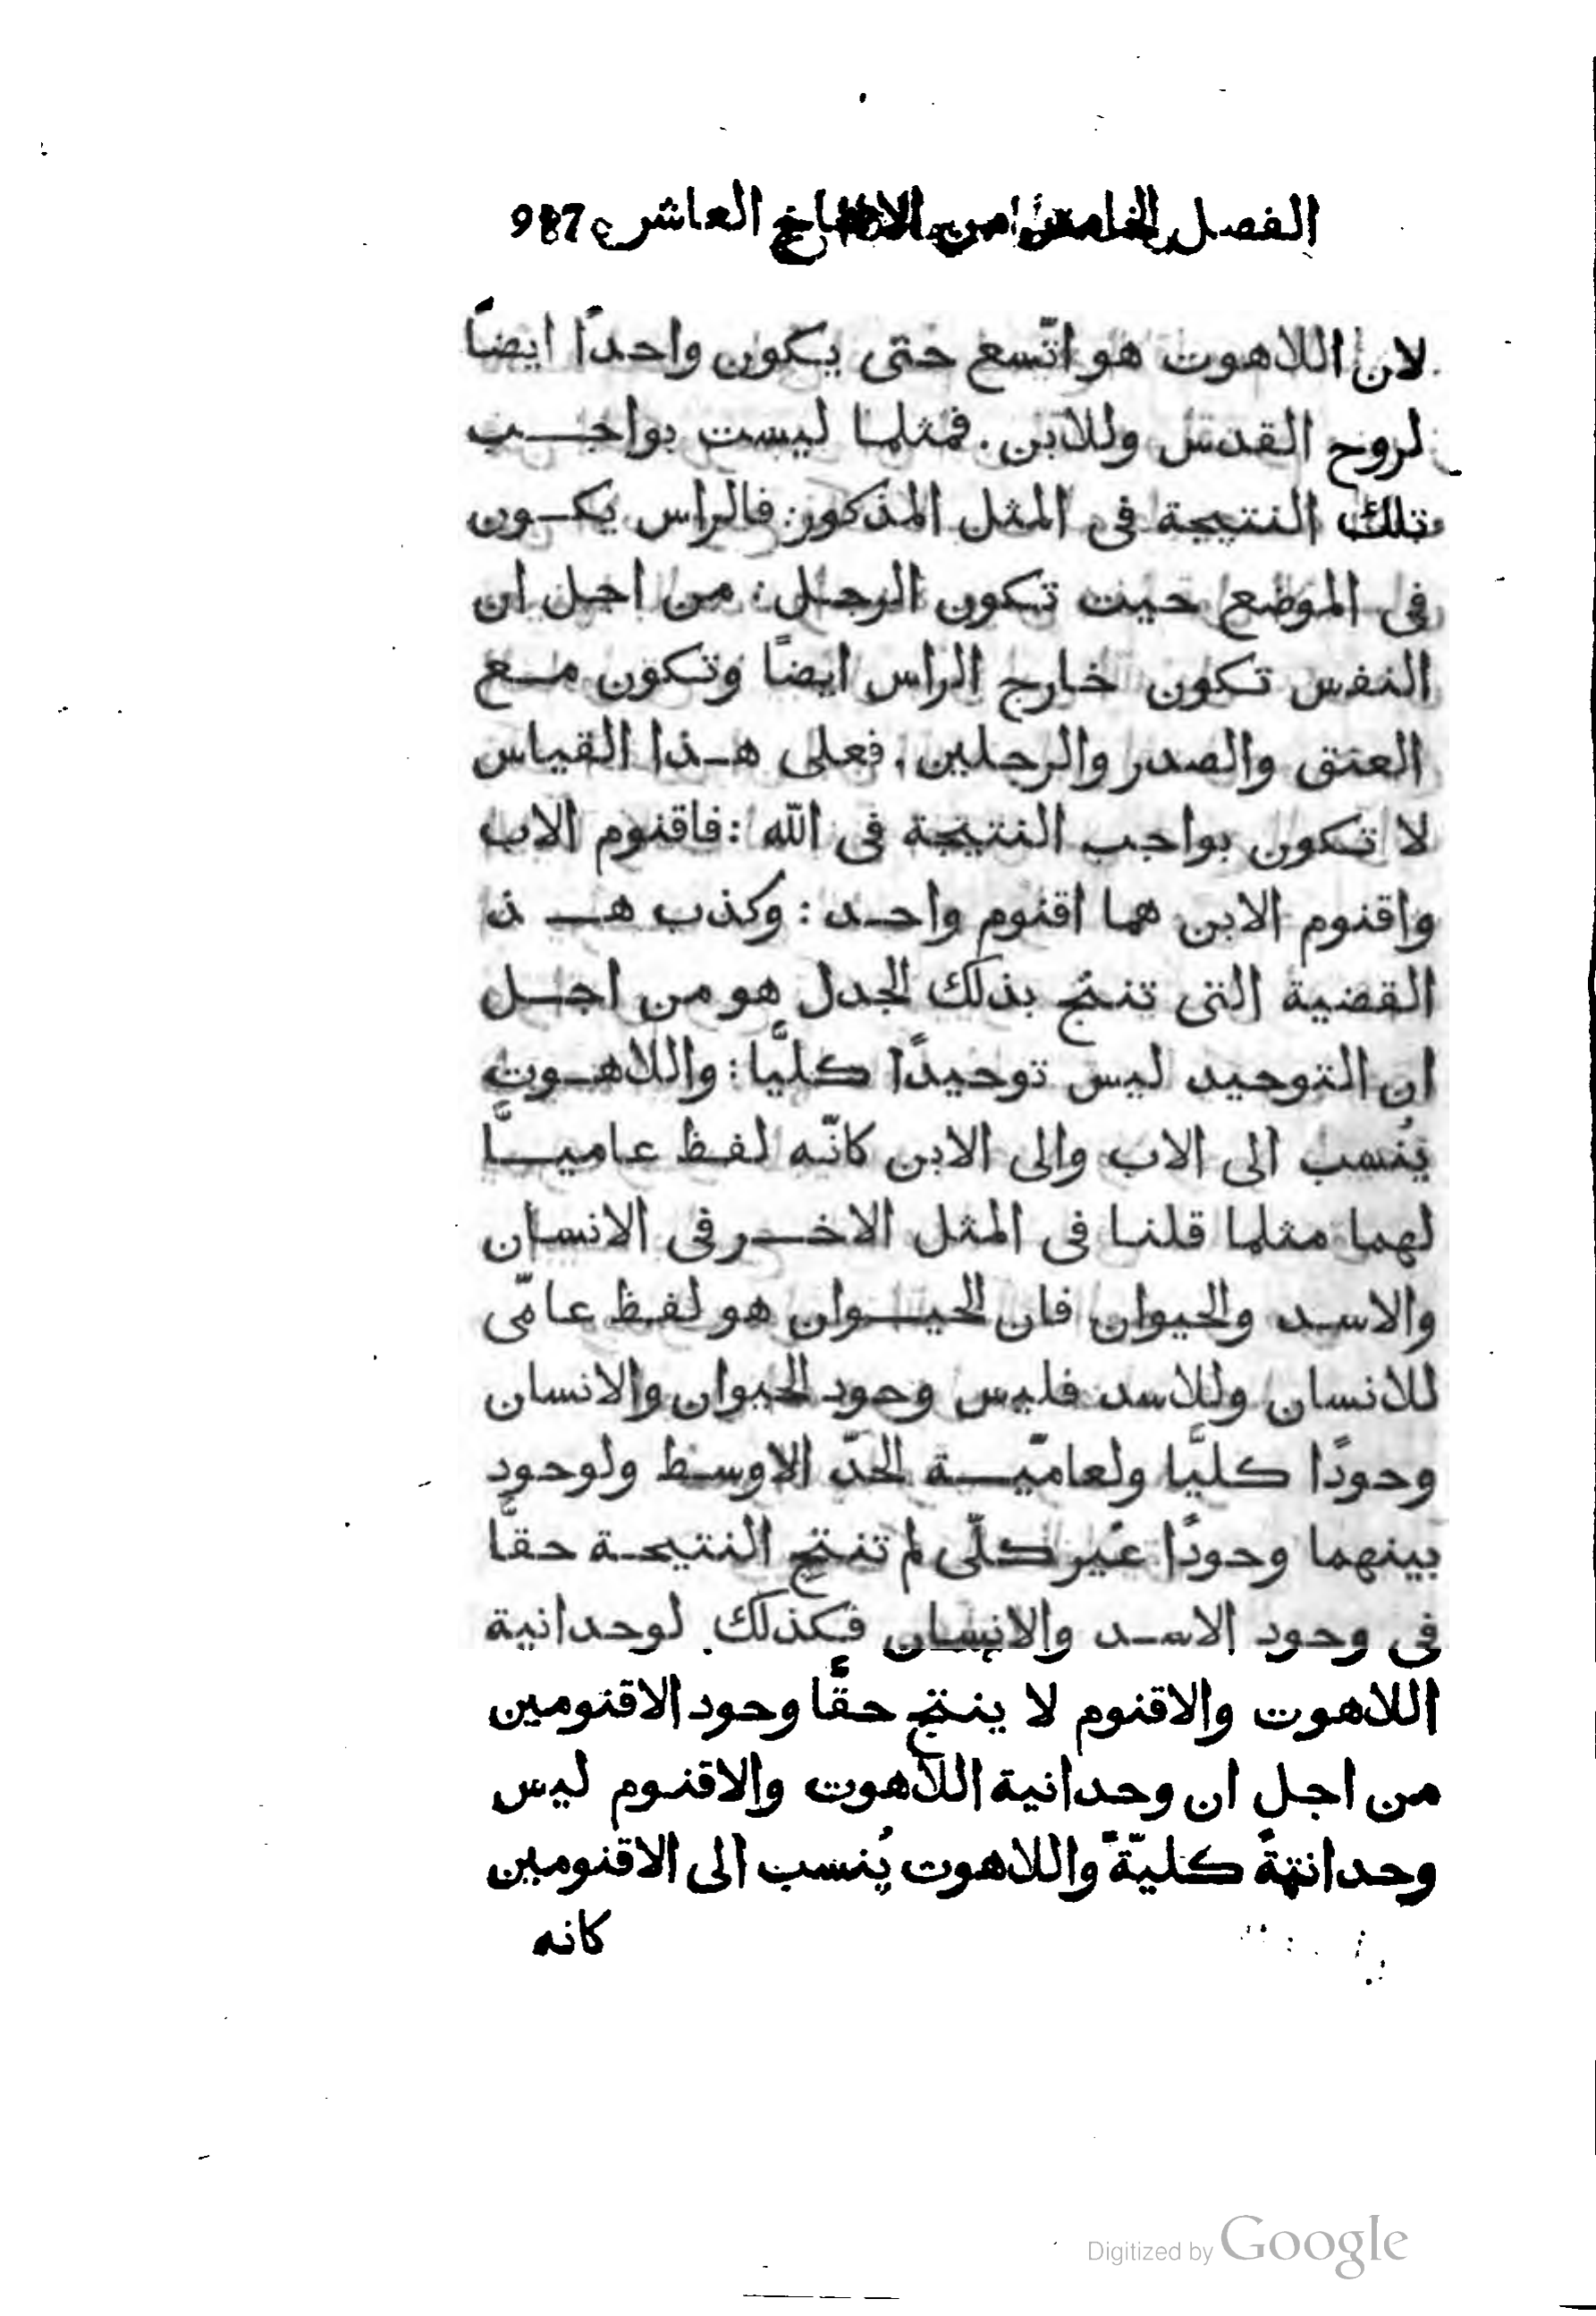 الفصل الخامس من الاصحاح العاشر 987
لان اللاهوت هو اتّسع حتى يكون واحدًا ايضاً
لروح القدس وللابن. فمثلما ليست بواجب
تلك النتيجة فى المثل المذكور: فالراس يكون
فى الموضع حيث تكون الرجل: من اجل ان
النفس تكون خارج الراس ايضاً وتكون مع
العنق والصدر والرجلين. فعلى هذا القياس
لا تكون بواجب النتيجة فى الله: فاقنوم الاب
واقنوم الابن هما اقنوم واحد: وكذب هذ
القضية التى تنتج بذلك الجدل هو من اجل
ان التوحيد ليس توحيدًا كليًّا: واللاهوت
يُنسب الى الاب والى الابن كانّه لفظ عاميًّا
لهما مثلما قلنا فى المثل الاخر فى الانسان
والاسد والحيوان فان الحيوان هو لفظ عامّى
للانسان وللاسد فليس وجود الحيوان والانسان
وجودًا كليًّا ولعاميّة الحدّ الاوسط ولوجود
بينهما وجودًا غير كلّى لم تنتج النتيجة حقًّا
فى وجود الاسد والانسان فكذلك لوحدانية
اللاهوت والاقنوم لا ينتج حقًّا وجود الاقنومين
من اجل ان وحدانية اللاهوت والاقنوم ليس
وحدانيةً كليّةً واللاهوت يُنسب الى الاقنومين
كانه
Digitized by Google